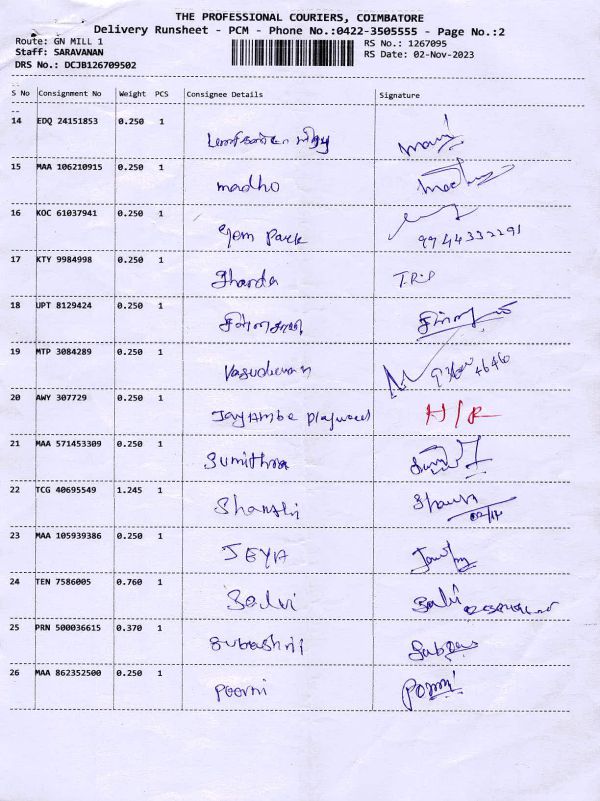 THE PROFESSIONAL COURIERS, COIMBATORE
Delivery Runsheet - PCM - Phone No.:0422-3505555 - Page No.:2
Route: GN MILL 1
Staff: SARAVANAN
DRS No.: DCJB126709502
RS No.: 1267095
RS Date: 02-Nov-2023
S No Consignment No Weight PCS Consignee Details Signature
14 EDQ 24151853 0.250 1
15 MAA 106210915 0.250 1 madho
16 KOC 61037941 0.250 1 Gem Park 9944332291
17 KTY 9984998 0.250 1 Sharda
18 UPT 8129424 0.250 1 சின்னசாமி
19 MTP 3084289 0.250 1 Vasudevan
20 AWY 307729 0.250 1 JayAmbe Playwood H/R
21 MAA 571453309 0.250 1 Sumithra
22 TCG 40695549 1.245 1 Shanthi
23 MAA 105939386 0.250 1 JEYA
24 TEN 7586005 0.760 1 Selvi
25 PRN 500036615 0.370 1 Subashri
26 MAA 862352500 0.250 1 Poorni